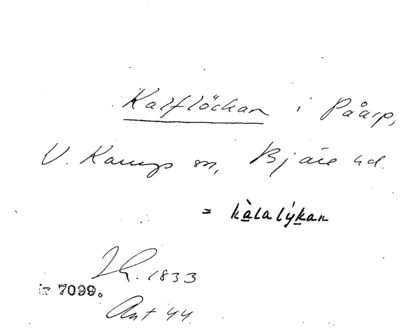 Kalflöckan i Påarp,
V. Karup sn, Bjäre hd.
= kàlalýkan
Ih. 1833
ir 7099.
Ant 44